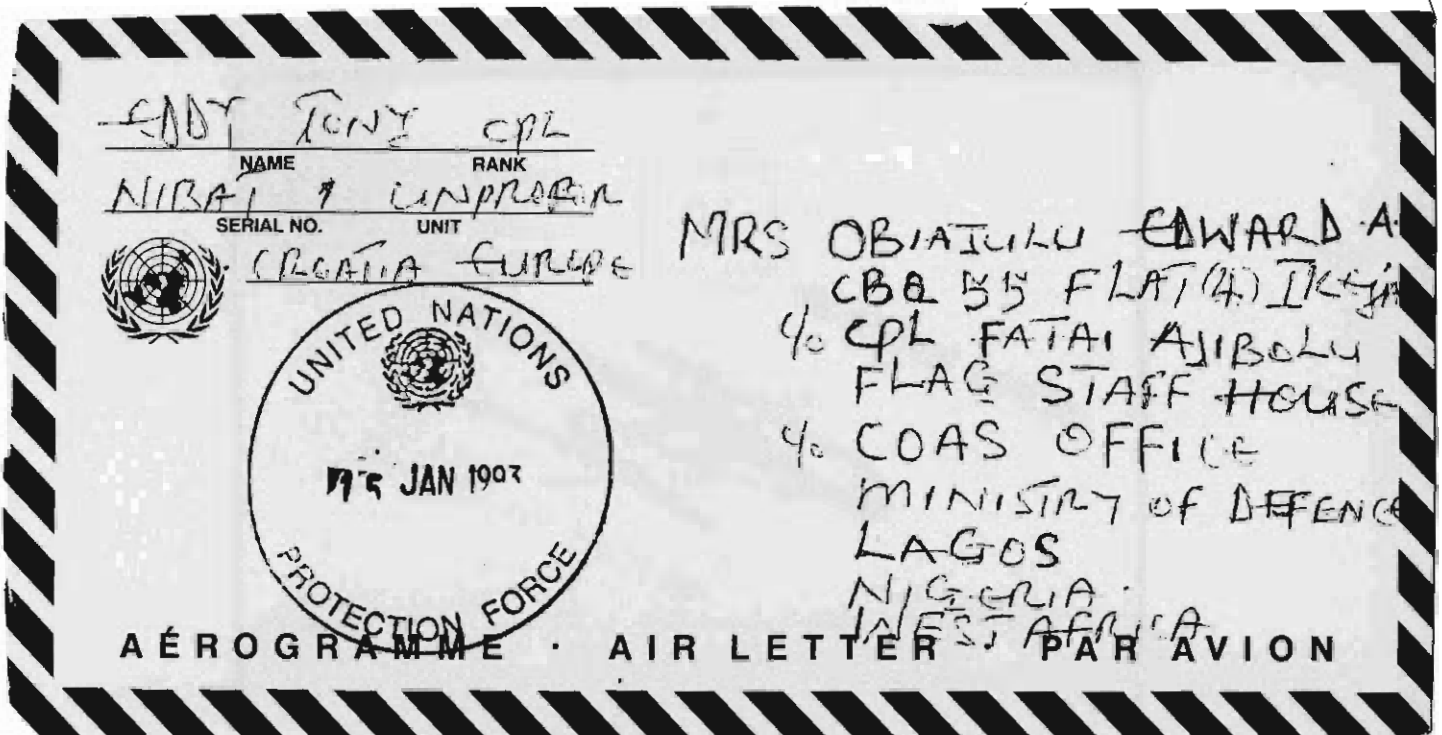 EDDY TONY CPL
NAME RANK
NIBAT UNPROFOR
SERIAL NO. UNIT
CROATIA EUROPE
UNITED NATIONS
JAN 1993
PROTECTION FORCE
MRS OBIAJULU EDWARD A.
CBQ 55 FLAT (4) IKEJA
c/o CPL FATAI AJIBOLU
FLAG STAFF HOUSE
c/o COAS OFFICE
MINISTRY OF DEFENCE
LAGOS
NIGERIA.
WEST AFRICA
AÉROGRAMME · AIR LETTER PAR AVION